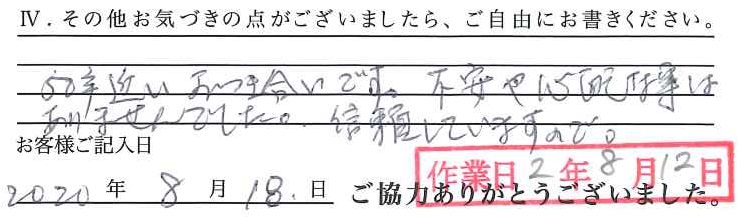 Ⅳ．その他お気づきの点がございましたら、ご自由にお書きください。
50年近いおつき合いです。不安や心配な事は
ありませんでした。信頼していますので。
お客様ご記入日
作業日 2 年 8 月 12 日
2020 年 8 月 18 日 ご協力ありがとうございました。